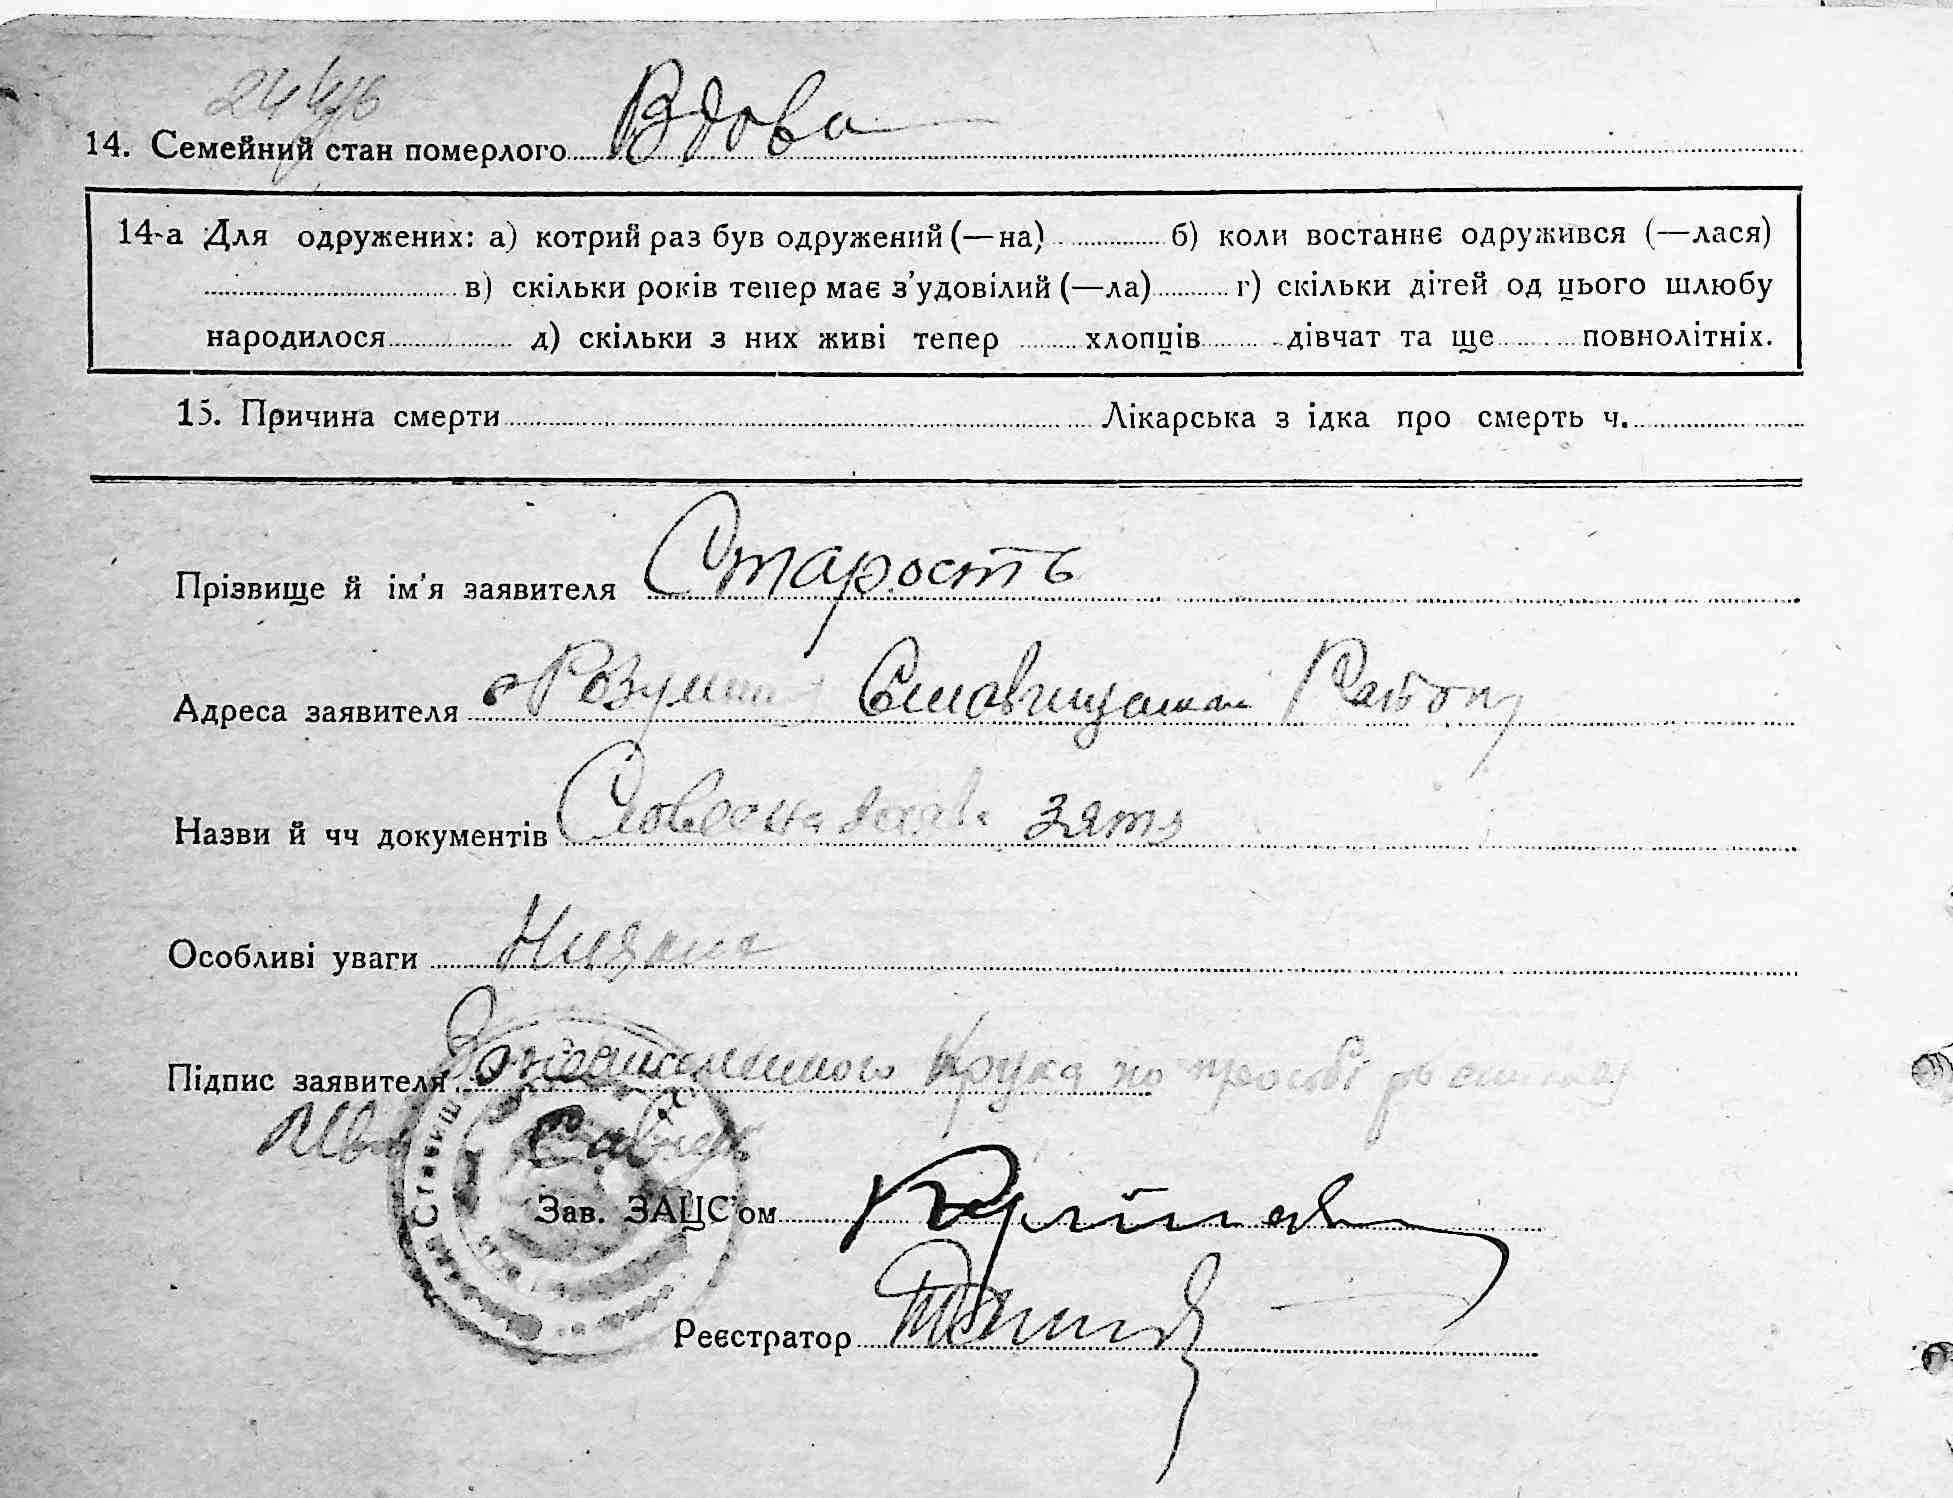 14. Семейний стан померлого Вдова
14-а Для одружених: а) котрий раз був одружений (—на) б) коли востаннє одружився (—лася)
в) скільки років тепер має з’удовілий (—ла) г) скільки дітей од цього шлюбу
народилося д) скільки з них живі тепер хлопців дівчат та ще повнолітніх.
15. Причина смерти Лікарська з ідка про смерть ч.
Прізвище й ім’я заявителя Старость
Адреса заявителя Район
Назви й чч документів Словесна зятя
Особливі уваги Нияких
Підпис заявителя За неписьменного Крука по просьбі
Зав. ЗАЦС’ом
Реєстратор